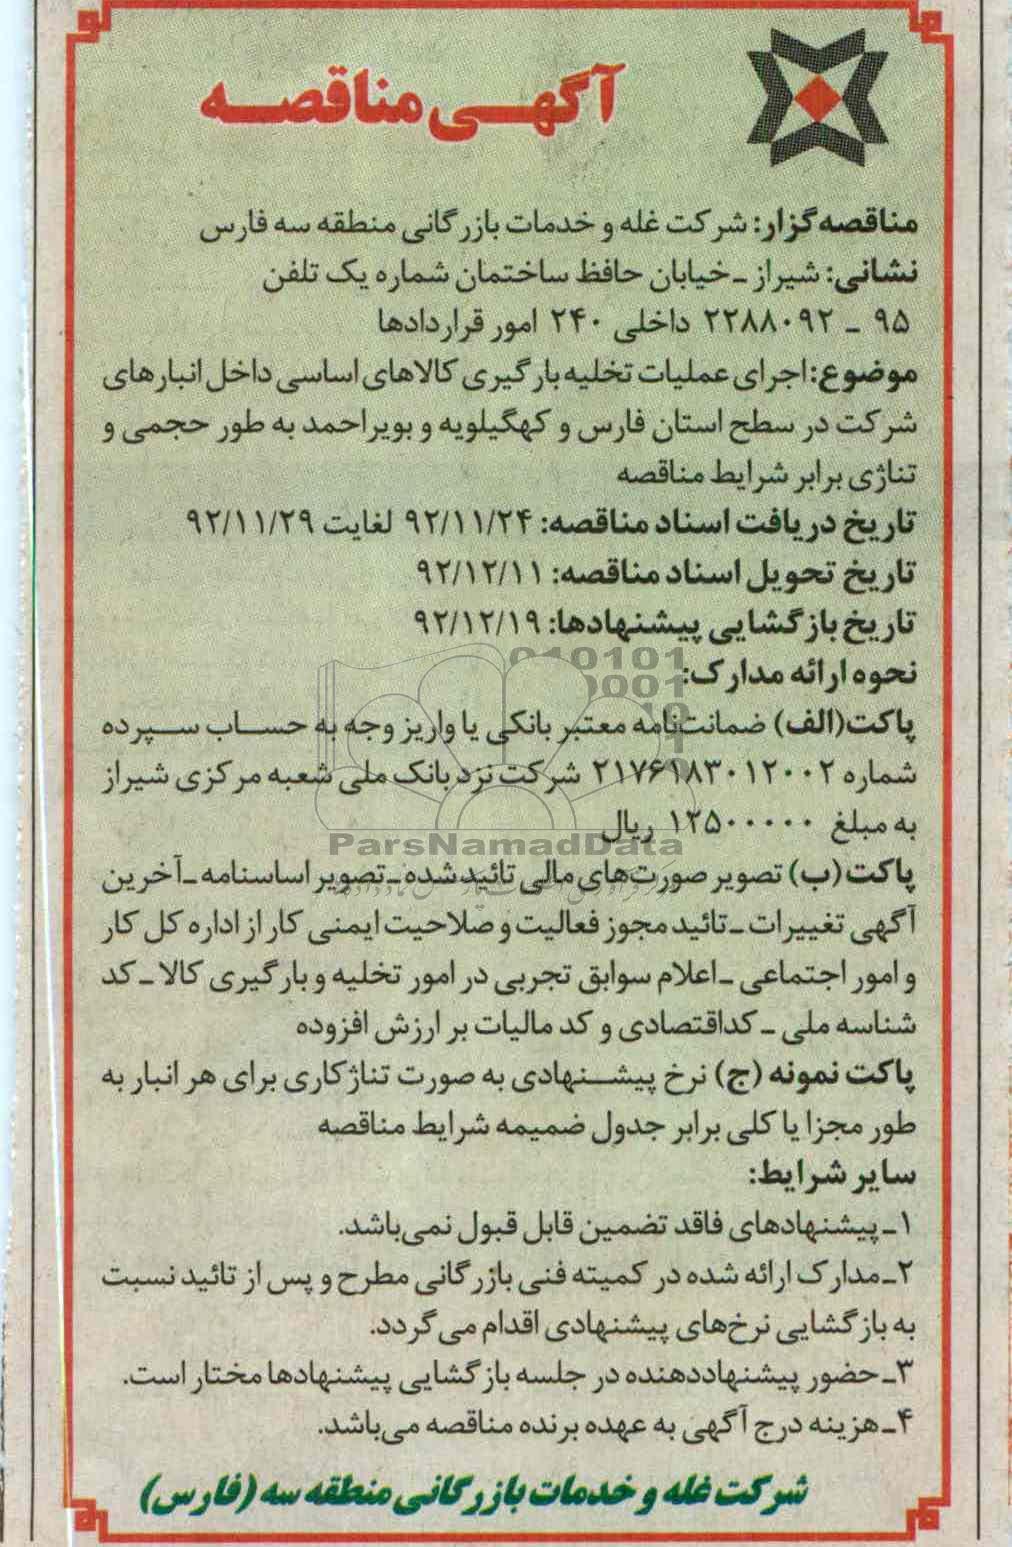 آگهی مناقصه
مناقصه‌گزار: شرکت غله و خدمات بازرگانی منطقه سه فارس
نشانی: شیراز ـ خیابان حافظ ساختمان شماره یک تلفن
۹۵ ـ ۲۲۸۸۰۹۲ داخلی ۲۴۰ امور قراردادها
موضوع: اجرای عملیات تخلیه بارگیری کالاهای اساسی داخل انبارهای
شرکت در سطح استان فارس و کهگیلویه و بویراحمد به طور حجمی و
تناژی برابر شرایط مناقصه
تاریخ دریافت اسناد مناقصه: ۹۲/۱۱/۲۴ لغایت ۹۲/۱۱/۲۹
تاریخ تحویل اسناد مناقصه: ۹۲/۱۲/۱۱
تاریخ بازگشایی پیشنهادها: ۹۲/۱۲/۱۹
نحوه ارائه مدارک:
پاکت(الف) ضمانت‌نامه معتبر بانکی یا واریز وجه به حساب سپرده
شماره ۲۱۷۶۱۸۳۰۱۲۰۰۲ شرکت نزد بانک ملی شعبه مرکزی شیراز
به مبلغ ۱۲۵۰۰۰۰۰۰ ریال
ParsNamadData
پاکت(ب) تصویر صورت‌های مالی تائیدشده ـ تصویر اساسنامه ـ آخرین
آگهی تغییرات ـ تائید مجوز فعالیت و صلاحیت ایمنی کار از اداره کل کار
و امور اجتماعی ـ اعلام سوابق تجربی در امور تخلیه و بارگیری کالا ـ کد
شناسه ملی ـ کداقتصادی و کد مالیات بر ارزش افزوده
پاکت نمونه (ج) نرخ پیشنهادی به صورت تناژکاری برای هر انبار به
طور مجزا یا کلی برابر جدول ضمیمه شرایط مناقصه
سایر شرایط:
۱ـ پیشنهادهای فاقد تضمین قابل قبول نمی‌باشد.
۲ـ مدارک ارائه شده در کمیته فنی بازرگانی مطرح و پس از تائید نسبت
به بازگشایی نرخ‌های پیشنهادی اقدام می‌گردد.
۳ـ حضور پیشنهاددهنده در جلسه بازگشایی پیشنهادها مختار است.
۴ـ هزینه درج آگهی به عهده برنده مناقصه می‌باشد.
شرکت غله و خدمات بازرگانی منطقه سه (فارس)